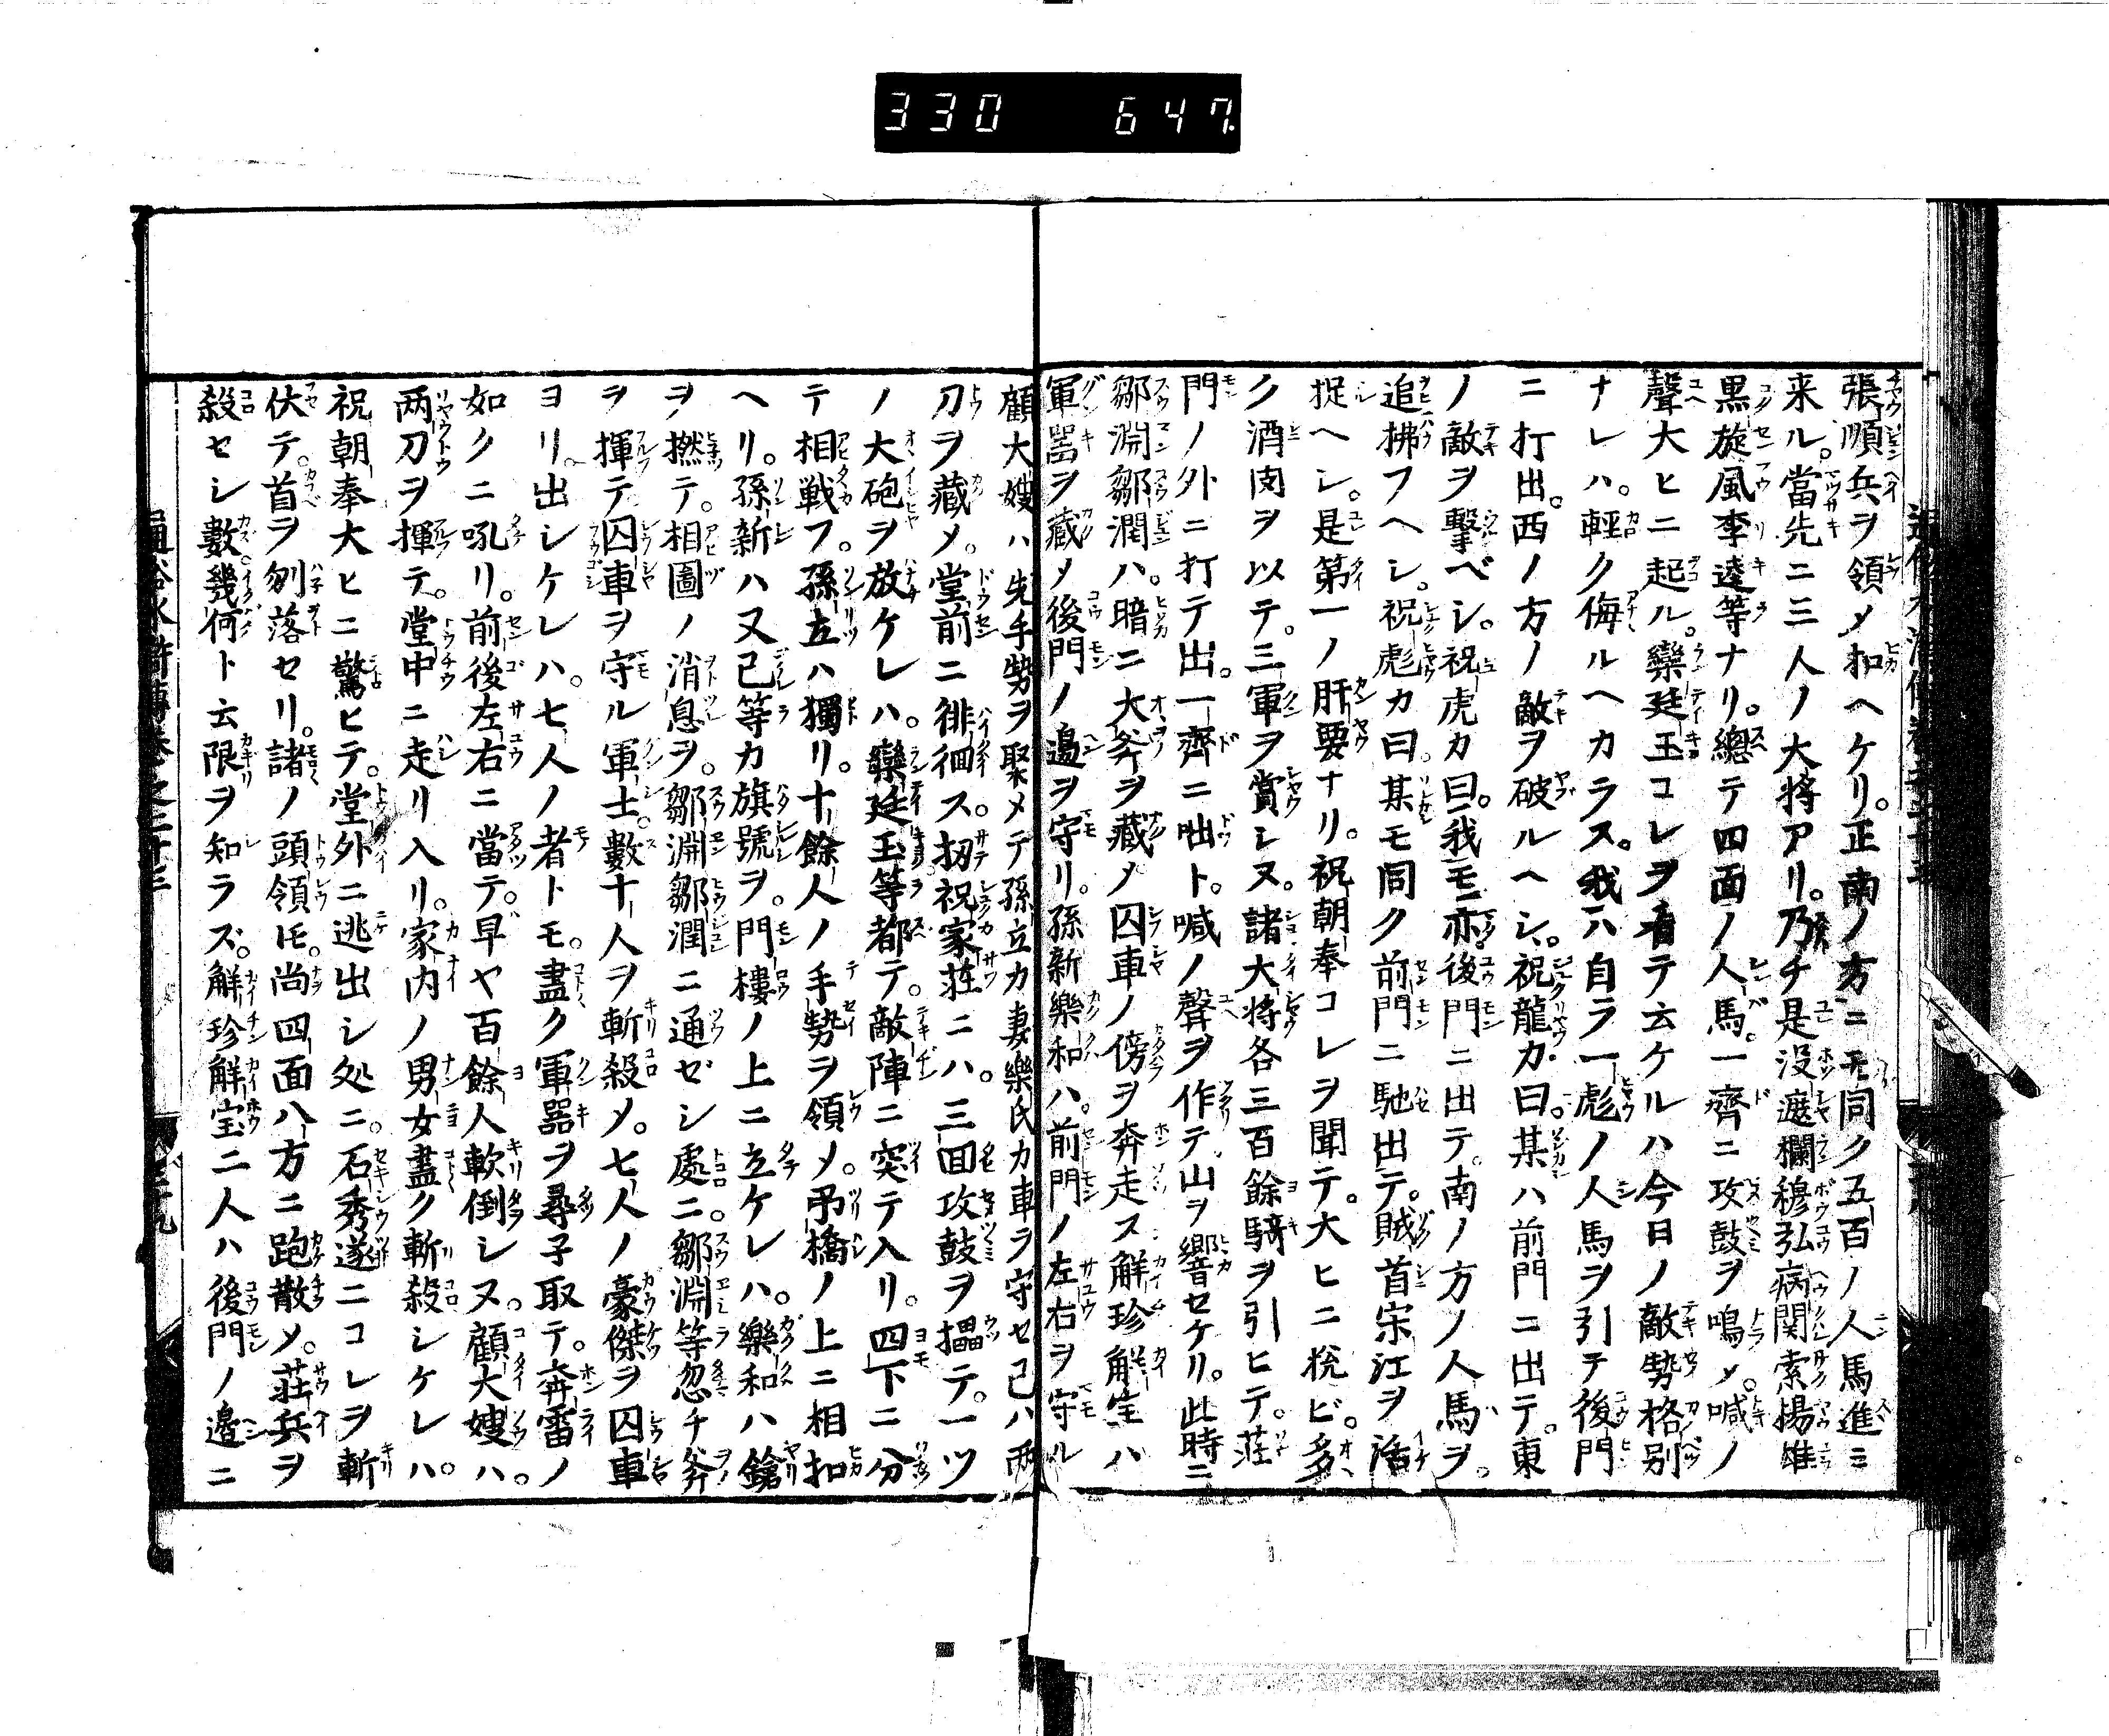 330 647
張順兵ヲ領メ扣ヘケリ。正南ノ方ニモ同ク五百ノ人馬進ミ
来ル。當先ニ三人ノ大将アリ。乃チ是没遮欄穆弘病関索揚雄
黒旋風李逵等ナリ。總テ四面ノ人馬。一齊ニ攻鼓ヲ鳴メ。喊ノ
聲大ヒニ起ル。欒廷玉コレヲ看テ云ケルハ今日ノ敵勢格別
ナレハ。輕ク侮ルヘカラス。我ハ自ラ一彪ノ人馬ヲ引テ後門
ニ打出。西ノ方ノ敵ヲ破ルヘシ。祝龍カ曰。某ハ前門ニ出テ。東
ノ敵ヲ擊ベシ。祝虎カ曰。我モ亦後門ニ出テ。南ノ方ノ人馬ヲ。
追拂フヘシ。祝彪カ曰。某モ同ク前門ニ馳出テ。賊首宋江ヲ活
捉ヘシ。是第一ノ肝要ナリ。祝朝奉コレヲ聞テ。大ヒニ悦ビ。多
ク酒肉ヲ以テ。三軍ヲ賞シヌ。諸大将各三百餘騎ヲ引ヒテ。莊
門ノ外ニ打テ出。一齊ニ咄ト。喊ノ聲ヲ作テ。山ヲ響セケリ。此時ニ
鄒淵鄒潤ハ。暗ニ大斧ヲ藏メ囚車ノ傍ヲ奔走ス解珍解宝ハ
軍噐ヲ藏メ後門ノ邉ヲ守リ。孫新樂和ハ。前門ノ左右ヲ守ル
顧大嫂ハ先手勢ヲ聚メテ孫立カ妻樂氏カ車ラ守セ己ハ両
刀ヲ藏メ。堂前ニ徘徊ス。扨祝家莊ニハ。三囬攻鼓ヲ擂テ。一ツ
ノ大砲ヲ放ケレハ。欒廷玉等都テ。敵陣ニ突テ入リ。四下ニ分
テ相戦フ。孫立ハ獨リ。十餘人ノ手勢ヲ領メ。吊橋ノ上ニ相扣
ヘリ。孫新ハ又己等カ旗號ヲ。門樓ノ上ニ立ケレハ。樂和ハ鎗
ヲ撚テ。相圖ノ消息ヲ。鄒淵鄒潤ニ通ゼシ處ニ。鄒淵等忽チ斧
ヲ揮テ囚車ヲ守ル軍士。數十人ヲ斬殺メ。七人ノ豪傑ヲ囚車
ヨリ。出シケレハ。七人ノ者トモ。盡ク軍噐ヲ尋子取テ。奔雷ノ
如クニ吼リ。前後左右ニ當テ。早ヤ百餘人軟倒シヌ。顧大嫂ハ。
両刀ヲ揮テ。堂中ニ走リ入リ。家内ノ男女盡ク斬殺シケレハ。
祝朝奉大ヒニ驚ヒテ。堂外ニ逃出シ処ニ。石秀遂ニコレヲ斬
伏テ。首ヲ刎落セリ。諸ノ頭領モ。尚四面八方ニ跑散メ。莊兵ヲ
殺セシ數幾何ト云限ヲ知ラズ。解珍解宝二人ハ後門ノ邉ニ
通俗水滸傳卷之二十三